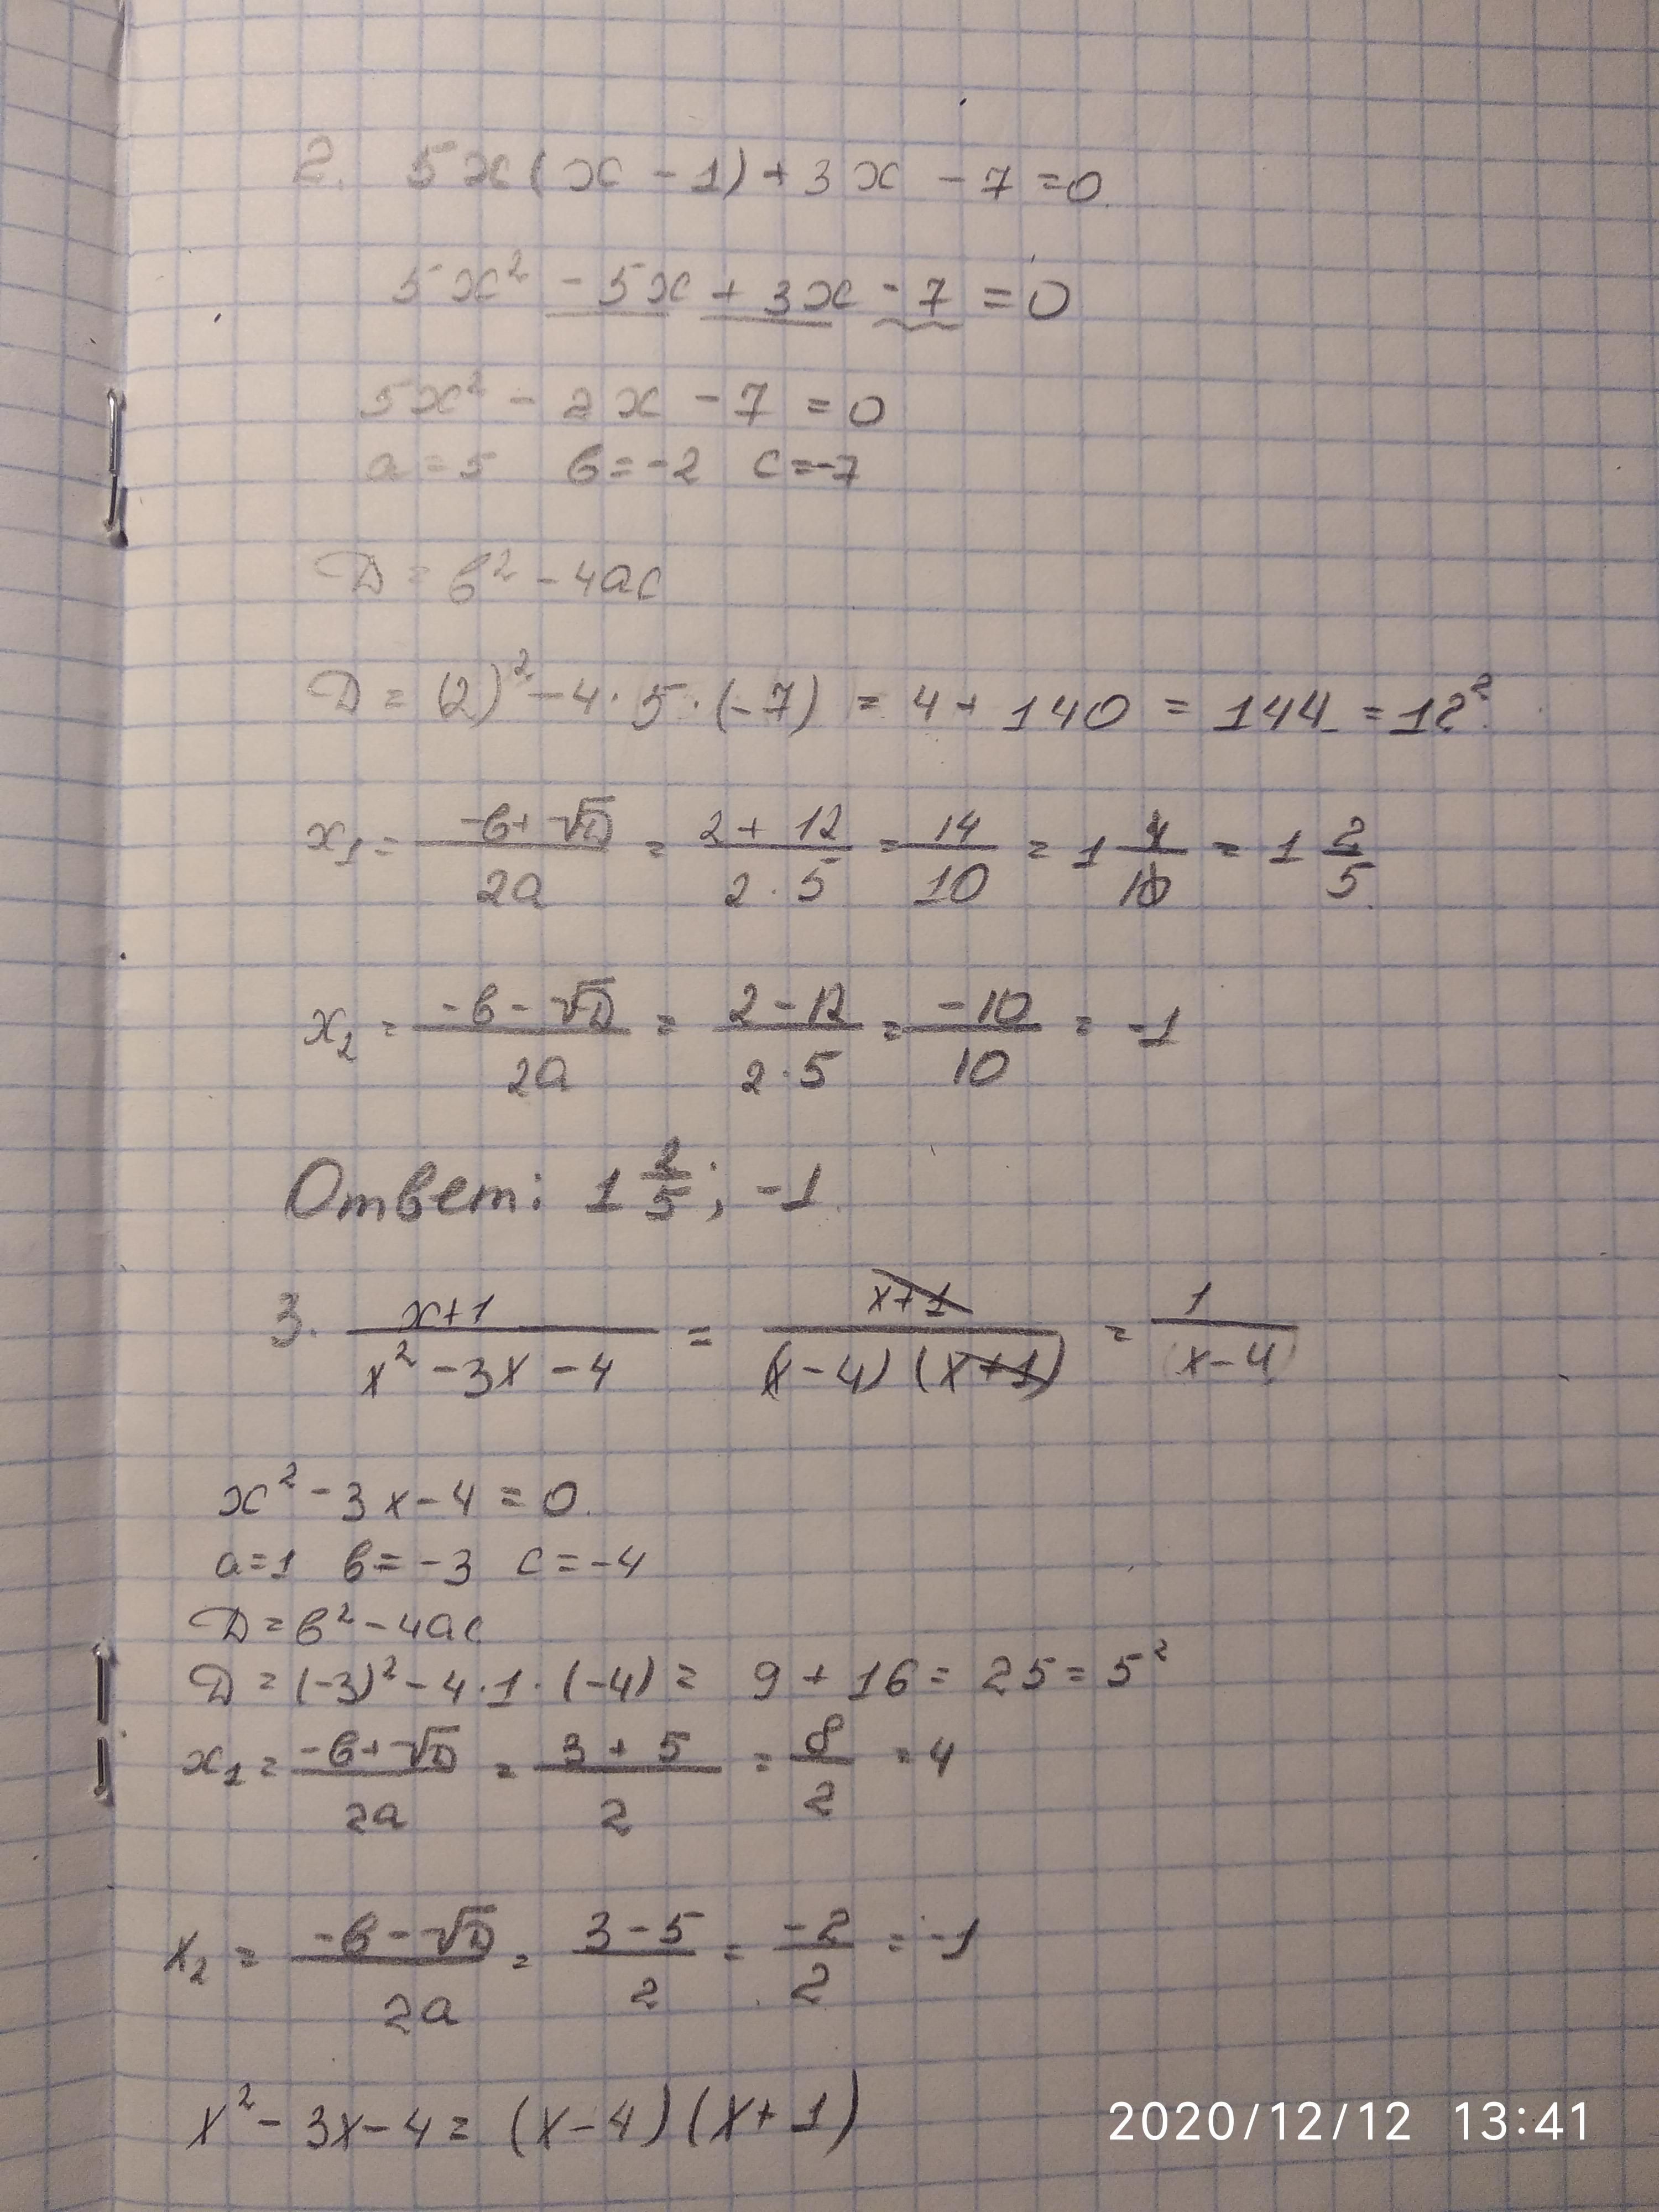 2. 5x(x - 1) + 3x - 7 = 0
5x² - 5x + 3x - 7 = 0
5x² - 2x - 7 = 0
a = 5 в = -2 c = -7
D = в² - 4ac
D = (2)² - 4 · 5 · (-7) = 4 + 140 = 144 = 12²
x₁ = (-в + √D)/(2a) = (2 + 12)/(2 · 5) = 14/10 = 1 4/10 = 1 2/5
x₂ = (-в - √D)/(2a) = (2 - 12)/(2 · 5) = -10/10 = -1
Ответ: 1 2/5; -1
3. (x+1)/(x² - 3x - 4) = (x+1)/((x-4)(x+1)) = 1/(x-4)
x² - 3x - 4 = 0
a = 1 в = -3 c = -4
D = в² - 4ac
D = (-3)² - 4 · 1 · (-4) = 9 + 16 = 25 = 5²
x₁ = (-в + √D)/(2a) = (3 + 5)/2 = 8/2 = 4
x₂ = (-в - √D)/(2a) = (3 - 5)/2 = -2/2 = -1
x² - 3x - 4 = (x-4)(x+1)
2020/12/12 13:41